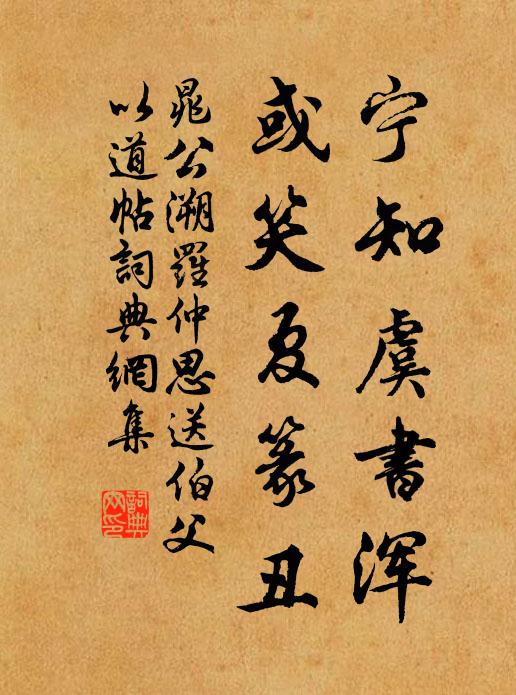 宁知虞书浑
或笑夏篆丑
晁公溯羅仲思送伯父
以道帖詞典網集
詞典网印